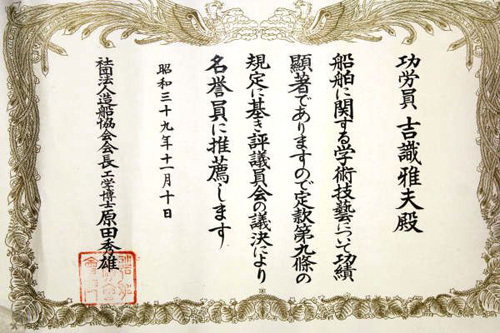 功労員 吉識雅夫殿
船舶に関する学術技藝について功績
顕著でありますので定款第九條の
規定に基き評議員会の議決により
名誉員に推薦します
昭和三十九年十一月十日
社団法人造船協会会長 工学博士 原田秀雄